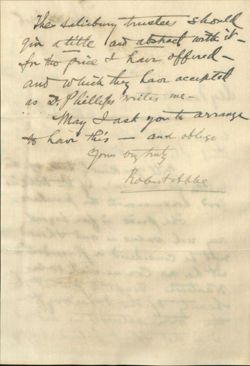 The Salisbury trustees should
give a title and abstract with it -
for the price I have offered -
and which they have accepted
as Dr. Phillips writes me -
May I ask you to arrange
to have this - and oblige
Yours vry truly
Robert Abbe